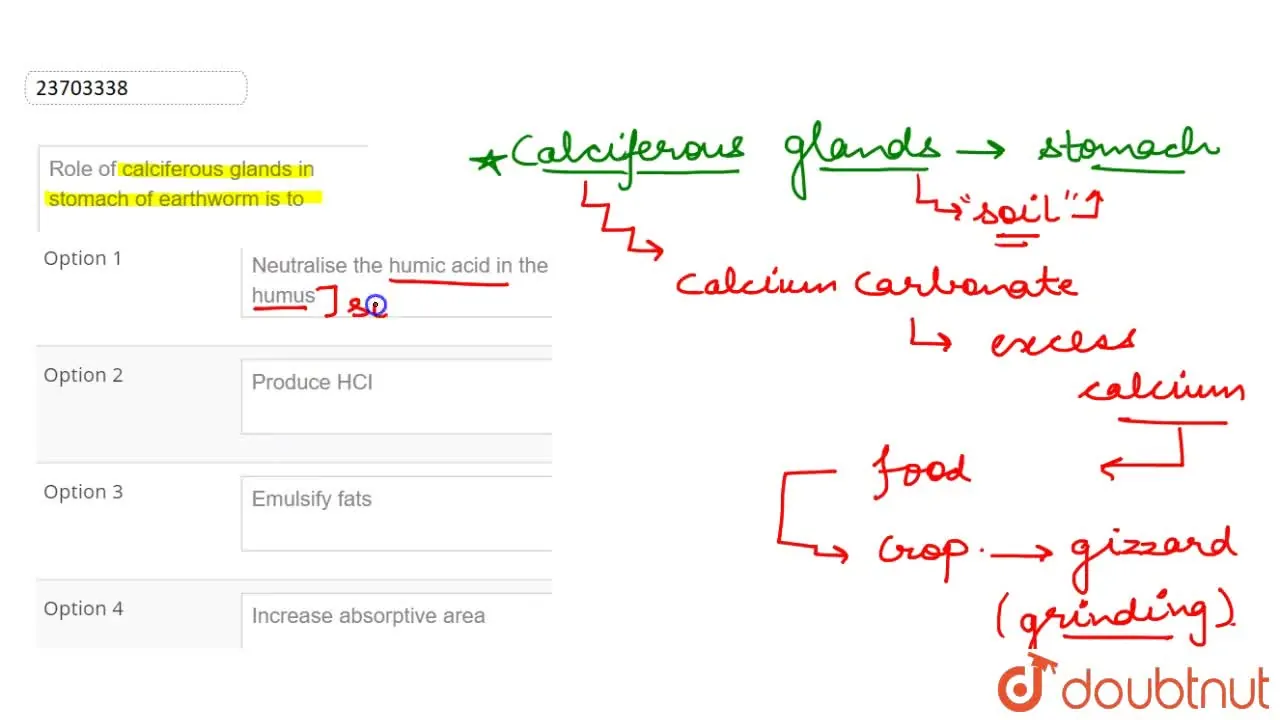 23703338
Role of calciferous glands in
stomach of earthworm is to
Option 1
Neutralise the humic acid in the
humus
Option 2
Produce HCl
Option 3
Emulsify fats
Option 4
Increase absorptive area
★ Calciferous glands → stomach
"soil"
Calcium Carbonate
excess
calcium
food
crop. → gizzard
(grinding).
doubtnut